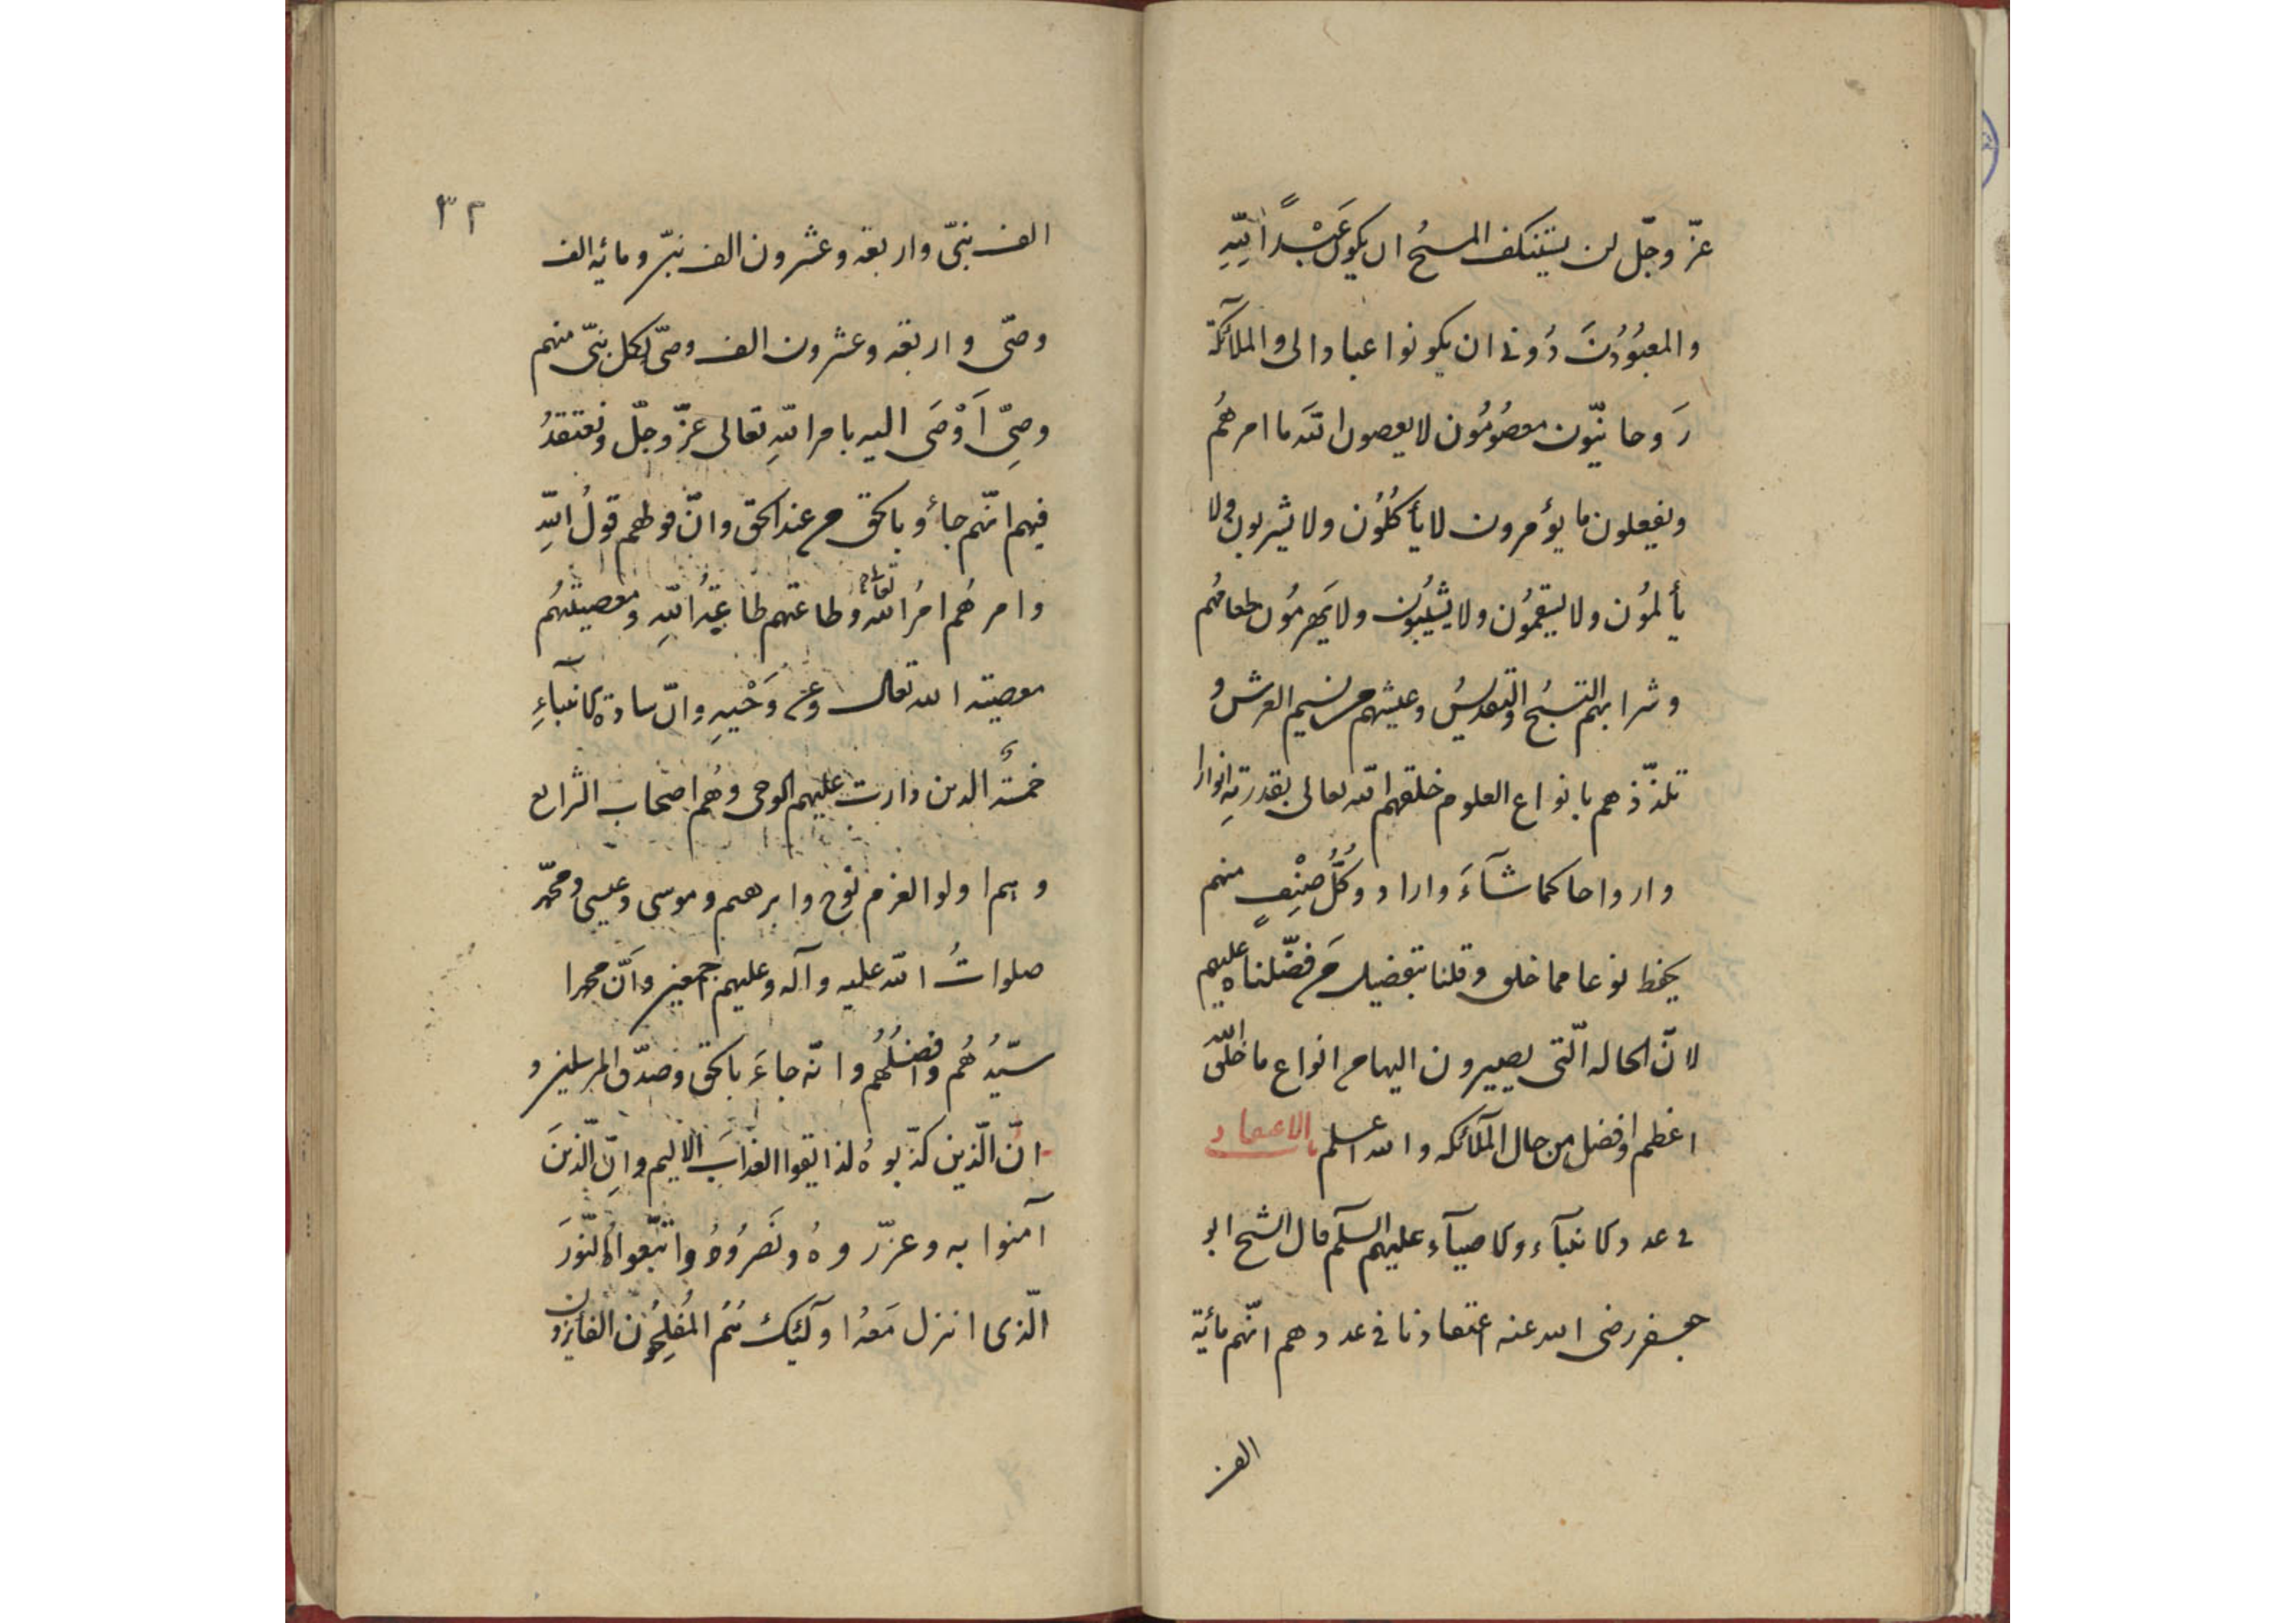 عزّ وجلّ لن يستنكف المسيح ان يكون عَبْداً للّهِ
والمعبُودُنَ دُونى ان يكونوا عبادا لى والملآئكة
رَوحانيّون معصُومُون لا يعصون اللّه ما امرهُم
ويفعلون ما يؤمرون لا يأكلُون ولا يشربون ولا
يألمُون ولا يسقمُون ولا يشيبُون ولا يهرمُون طعامهُم
وشرابهم التسبيح والتقديسُ وعيشهم من نسيم العرش و
تلذّذهم بانواع العلوم خلقهم اللّه تعالى بقدرته انوارا
وارواحا كما شآءَ واراد وكُلُّ صِنْفٍ منهم
يحفظ نوعا مما خلق وقلنا بتفضيل من فضّلناه عليهم
لانّ الحاله الّتى يصيرون اليها من انواع ما خلق اللّه
اعظم وافضل من حال الملآئكه والله اعلم باب الاعتقاد
فى عدد الانبيآء والاوصيآء عليهم السلم قال الشيخ ابو
جعفر رضى الله عنه اعتقادنا فى عددهم انّهم مأئة
الف
٣٢
الف نبىّ واربعه وعشرون الف نبىّ ومائه الف
وصىّ واربعه وعشرون الف وصىّ لكل نبىّ منهم
وصِىّ اَوْصَى اليه بامر اللّهِ تعالى عزّ وجلّ ونعتقدُ
فيهم انّهم جاؤ بالحق من عند الحق وانّ قولهم قولُ اللّهِ
وامرهُم امرُ الله تعالى وطاعتهم طاعةُ اللّهِ ومعصيتهُم
معصيته الله تعالى وعن وَحْيِهِ وانّ سادة الانبيآءِ
خمسةُ الذين دارت عليهم الوحى وهُم اصحاب الشرايع
وهم اولوا العزم نوح وابرهيم وموسى وعيسى ومحمّد
صلواتُ اللّه عليه وآله وعليهم اجمعين وانّ محمدا
سيّدُهُم وافضلُهُم وانّه جاءَ بالحق وصدّق المرسلين و
انّ الّذين كذّبوهُ لذايقوا العذابَ الاليم وانّ الّذينَ
آمنوا به وعزّروهُ ونَصَرُوهُ واتّبعوا النّورَ
الّذى انزل مَعهُ اولٓئِك هُمُ المُفلِحُون الفايزون